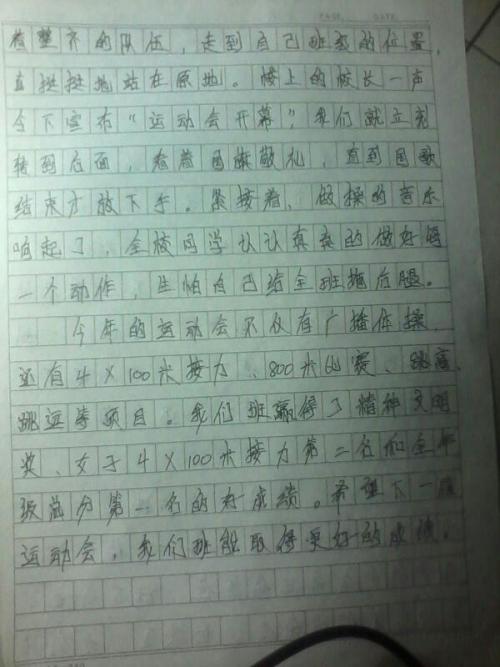 着整齐的队伍，走到自己班级的位置，
直挺挺地站在原地。楼上的校长一声
令下宣布“运动会开幕”，我们就立刻
转到后面，看着国旗敬礼，直到国歌
结束才放下手。紧接着，做操的音乐
响起了，全校同学认认真真的做好每
一个动作，生怕自己给全班拖后腿。
今年的运动会不仅有广播体操，
还有4×100米接力、800米比赛、跳高、
跳远等项目。我们班赢得了精神文明
奖、女子4×100米接力第二名和全年
级总分第一名的好成绩。希望下一届
运动会，我们班能取得更好的成绩。